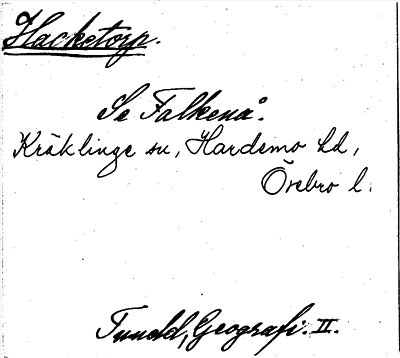 Hacketorp.
Se Falkenå.
Kräklinge sn, Hardemo hd,
Örebro l.
Tuneld, Geografi. II.